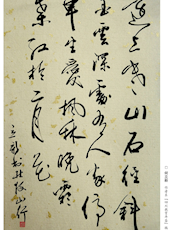 遠上寒山石徑斜
白雲深處有人家停
車坐愛楓林晚霜
葉紅於二月花
杜牧山行